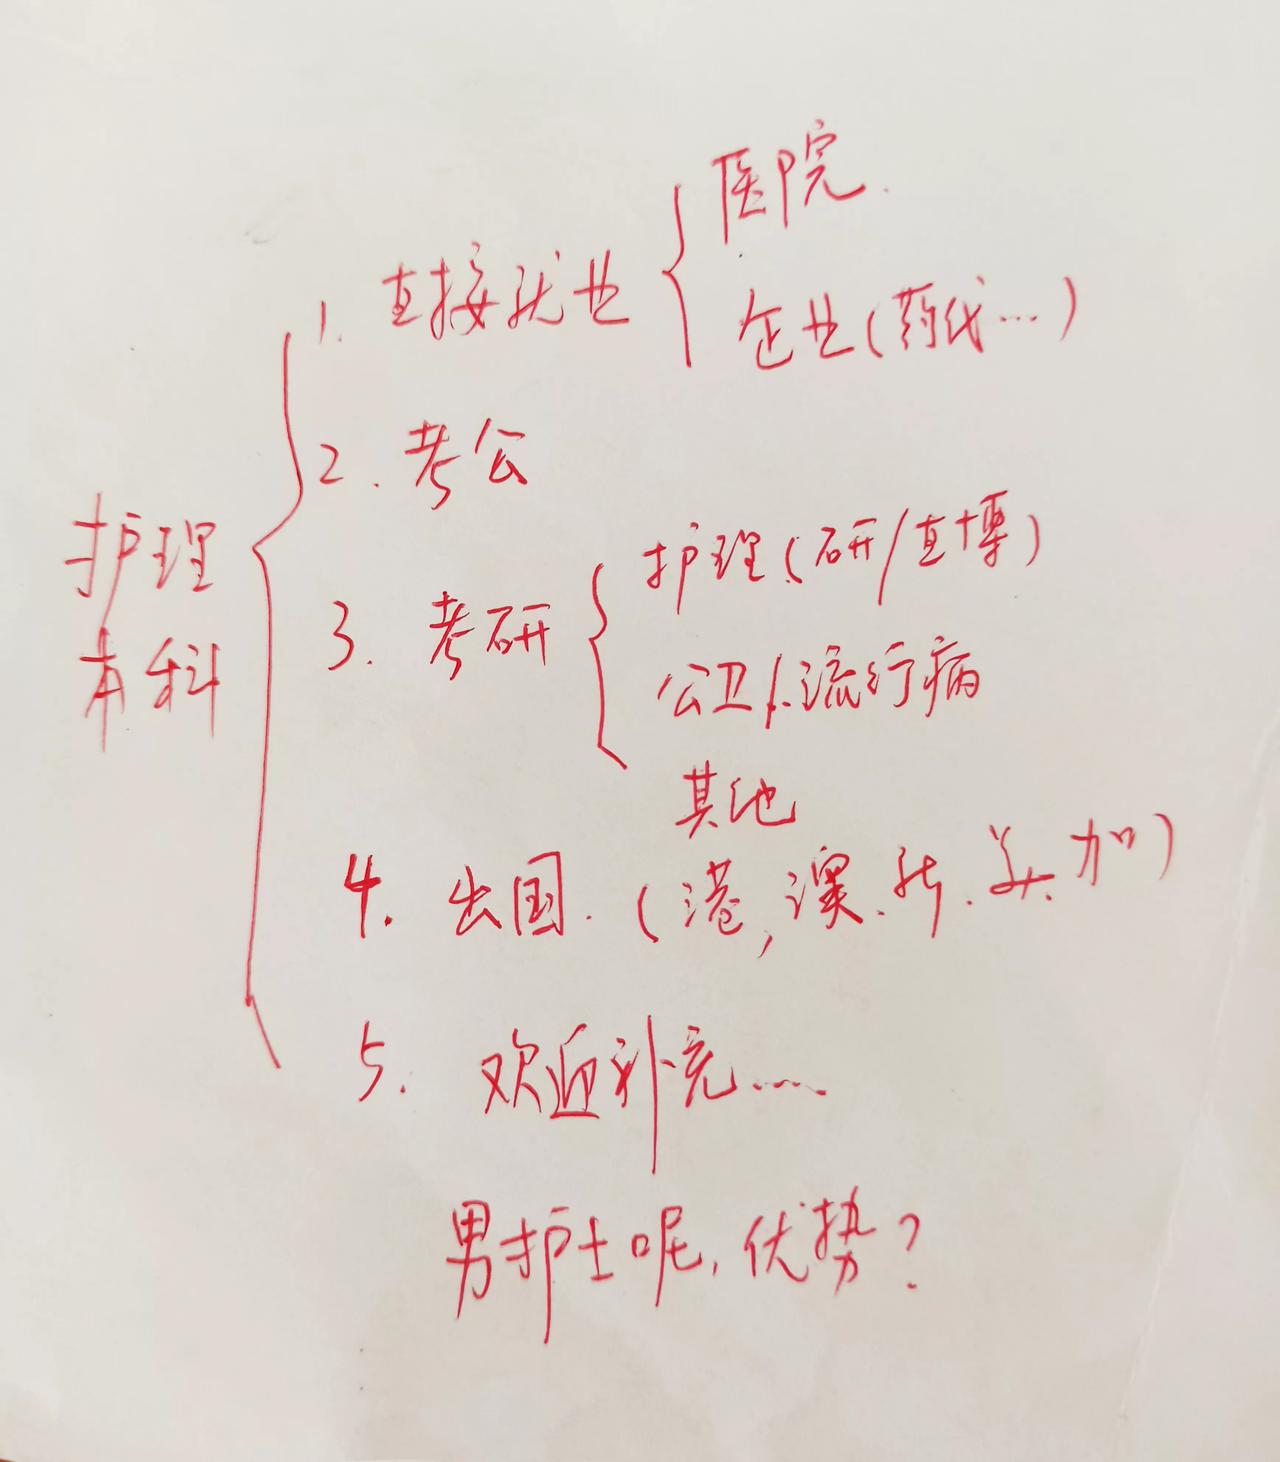 护理
本科
1. 直接就业
医院.
企业(药代…)
2. 考公
3. 考研
护理(研/直博)
公卫/.流行病
其他
4. 出国.(港,澳.新.美.加)
5. 欢迎补充……
男护士呢,优势?